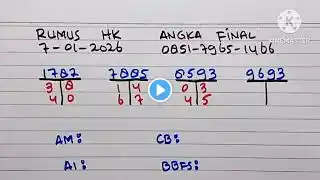 RUMUS HK ANGKA FINAL
7-01-2026 0851-7965-1466
KINEMASTER
1787 7885 0593 9693
3 8 1 4 0 3
4 0 6 7 4 5
AM: CB:
AI: BBFS: